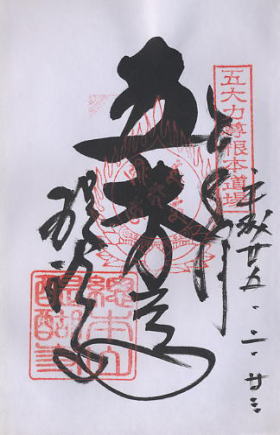 五大力尊根本道場
奉拝
平成廿五・二・廿三
五大力尊
醍醐寺
總本山
醍醐寺